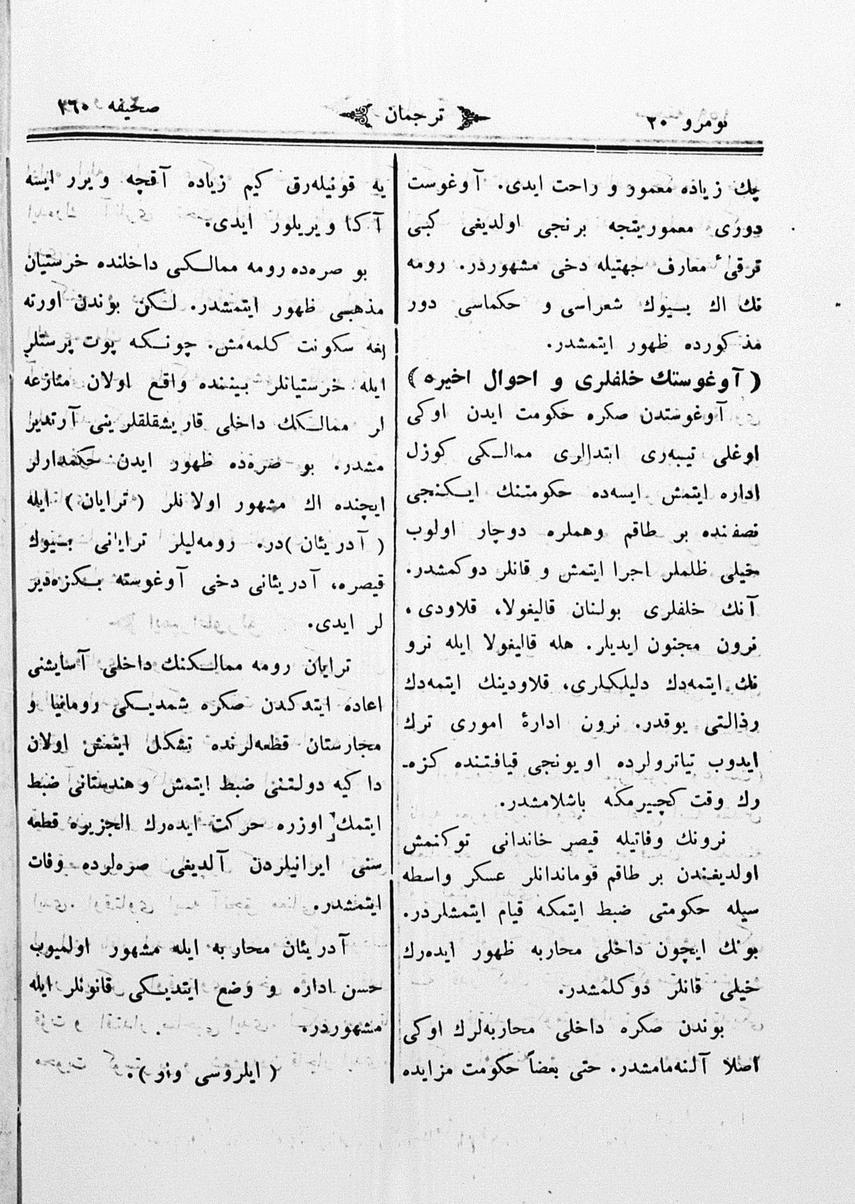 نومرو ٢٠
ترجمان
صحیفه ٣٦٠
چك زیاده معمور و راحت ایدی. آوغوست
دوری معموریتجه برنجی اولدیغی کبی
ترقیٔ معارف جهتیله دخی مشهوردر. رومه
نك اك بـیوك شعراسی و حکماسی دور
مذکورده ظهور ایتمشدر.
(آوغوستك خلفلری و احوال اخیره)
آوغوستدن صکره حکومت ایدن اوکی
اوغلی تیبه‌ری ابتدالری ممالـکی کوزل
اداره ایتمش ایسه‌ده حکومتنك ایـکنجی
نصفنده بر طاقم وهملره دوچار اولوب
خیلی ظلملر اجرا ایتمش و قانلر دوکمشدر.
آنك خلفلری بولنان قالیغولا، قلاودی،
نرون مجنون ایدیلر. هله قالیغولا ایله نرو
نك ایتمه‌دك دلیلکلری، قلاودینك ایتمه‌دك
رذالتی یوقدر. نرون ادارهٔ اموری ترك
ایدوب تیاترولرده اویونجی قیافتـنده کزه‌ـ
رك وقت کچیرمکه باشلامشدر.
نرونك وفاتیله قیصر خاندانی توکنمش
اولدیغندن بر طاقم قوماندانلر عسکر واسطه
سیله حکومتی ضبط ایتمکه قیام ایتمشلردر.
بونك ایچون داخلی محاربه ظهور ایده‌رك
خیلی قانلر دوکلمشدر.
بوندن صکره داخلی محاربه‌لرك اوکی
اصلا آلنه‌مامشدر. حتی بعضاً حکومت مزایده
یه قونیله‌رق کیم زیاده آقچه ویرر ایسه
آکا ویریلور ایدی.
بو صره‌ده رومه ممالـکی داخلنده خرستیان
مذهبی ظهور ایتمشدر. لـکن بوندن اورته
لغه سکونت کلمه‌مش. چونـکه پوت پرستلر
ایله خرستیانلر بیننده واقع اولان منازعه
لر ممالـکك داخلی قاریشقلقلرینی آرتدیر
مشدر. بو صره‌ده ظهور ایدن حکمدارلر
ایچنده اك مشهور اولانلر (ترایان) ایله
(آدریئان)در. رومه‌لیلر ترایانی بـیوك
قیصره، آدریئانی دخی آوغوسته بـکزه‌دیر
لر ایدی.
ترایان رومه ممالـکنك داخلی آسایشنی
اعاده ایتدکدن صکره شمدیـکی رومانیا و
مجارستان قطعه‌لرنده تشکل ایتمش اولان
داکیه دولتـنی ضبط ایتمش و هندستانی ضبط
ایتمك اوزره حرکت ایده‌رك الجزیره قطعه
سنی ایرانیلردن آلدیغی صره‌لرده وفات
ایتمشدر.
آدریئان محاربه ایله مشهور اولمیوب
حسن اداره و وضع ایتدیـکی قانونلر ایله
مشهوردر.
(ایلروسی وار).